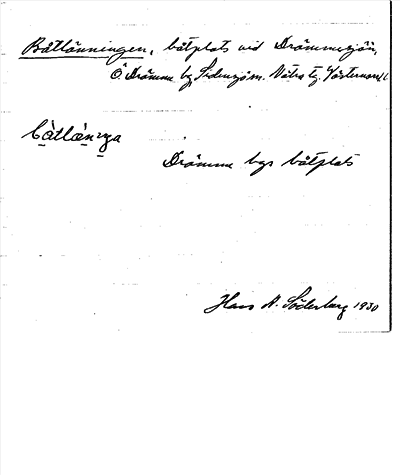 Båtlänningen, båtplats vid Drömmesjön,
Ö Drömme by, Sidensjö sn. Nätra tg. Västernorrl. l
båtlän
Drömme bys båtplats
Hans A. Söderberg 1930